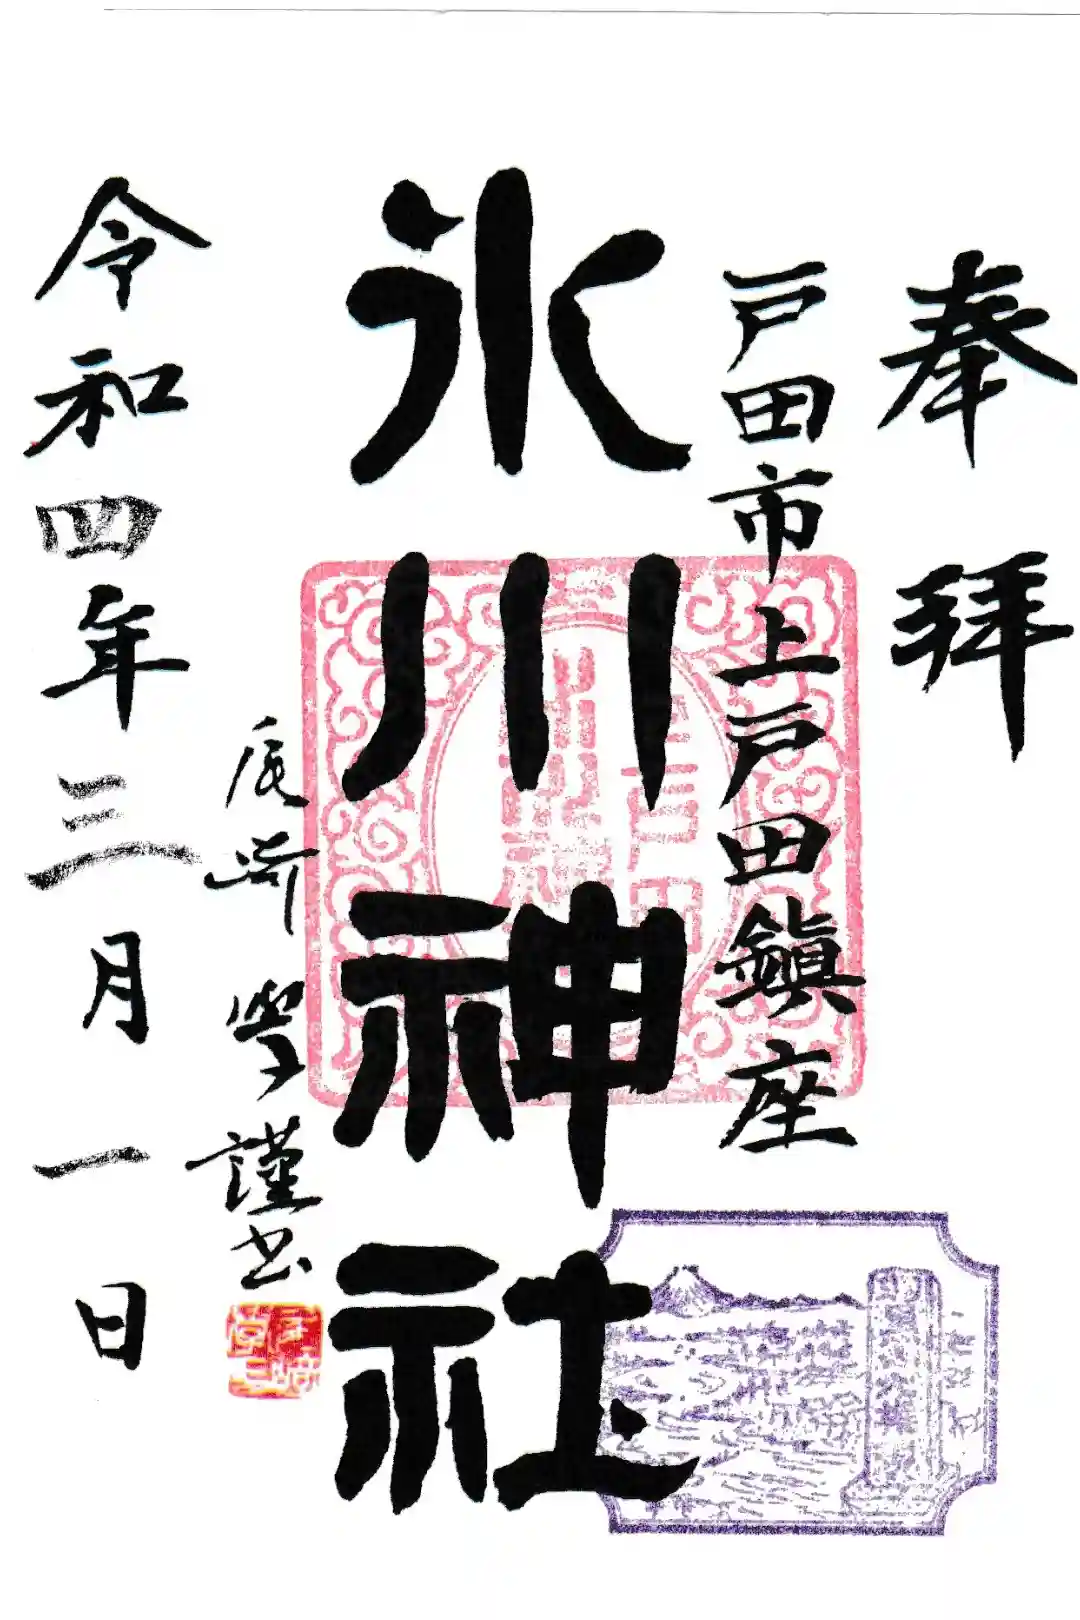 奉拝
戸田市上戸田鎮座
氷川神社
尾崎學謹書
令和四年三月一日